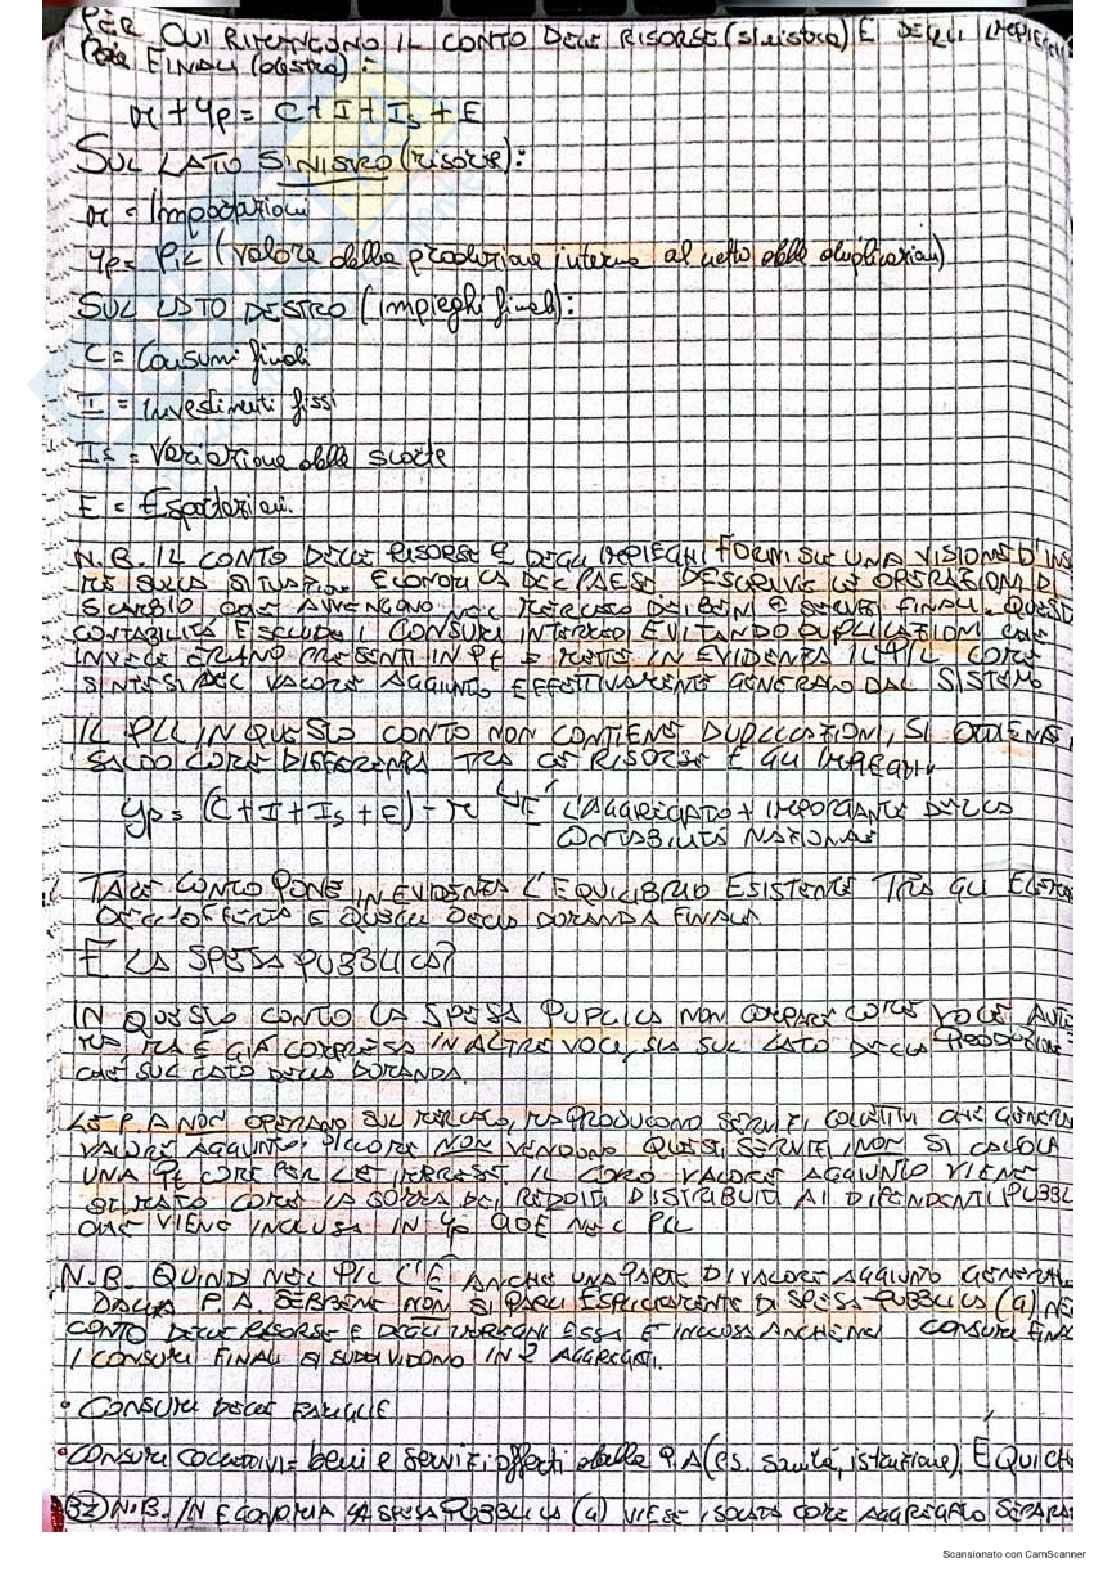 PER CUI RITENGONO IL CONTO DELLE RISORSE (sinistra) E DEGLI IMPIEGHI
FINALI (destra):
M + Yp = C + I + Is + E
SUL LATO SINISTRO (risorse):
M = Importazioni
Yp = PIL (valore della produzione interna al netto delle duplicazioni)
SUL LATO DESTRO (Impieghi finali):
C = Consumi finali
I = Investimenti fissi
Is = Variazione delle scorte
E = Esportazioni.
N.B. IL CONTO DELLE RISORSE E DEGLI IMPIEGHI FORNISCE UNA VISIONE D'INS
SULLA SITUAZION ECONOMICA DEL PAESE DESCRIVE LE OPERAZIONI D
SCAMBIO CHE AVVENGONO NEL MERCATO DEI BENI E SERVIZI FINALI. QUEST
CONTABILITÀ ESCLUDE I CONSUMI INTERMEDI EVITANDO DUPLICAZIONI CHE
INVECE ERANO PRESENTI IN Pt E METTE IN EVIDENZA IL PIL COME
SINTESI DEL VALORE AGGIUNTO EFFETTIVAMENTE GENERATO DAL SISTEMA
IL PIL IN QUESTO CONTO NON CONTIENE DUPLICAZIONI, SI OTTIENE
SALDO COME DIFFERENZA TRA LE RISORSE E GLI IMPIEGHI.
Yp = (C + I + Is + E) - M È L'AGGREGATO + IMPORTANTE DELLA
CONTABILITÀ NAZIONALE
TALE CONTO PONE IN EVIDENZA L'EQUILIBRIO ESISTENTE TRA GLI ELEM
DELL'OFFERTA E QUELLI DELLA DOMANDA FINALE.
E LA SPESA PUBBLICA?
IN QUESTO CONTO LA SPESA PUBLICA NON COMPARE COME VOCE AUTO
MA È GIÀ COMPRESA IN ALTRE VOCI, SIA SUL LATO DELLA PRODUZIONE
CHE SUL LATO DELLA DOMANDA.
LE P.A NON OPERANO SUL MERCATO, MA PRODUCONO SERVIZI COLLETTIVI CHE GENERA
VALORE AGGIUNTO. SICCOME NON VENDONO QUESTI SERVIZI, NON SI CALCOLA
UNA Pt COME PER LE IMPRESE. IL LORO VALORE AGGIUNTO VIENE
STIMATO COME LA SOMMA DEI REDDITI DISTRIBUITI AI DIPENDENTI PUBBL
CHE VIENE INCLUSA IN Yp CIOÈ NEL PIL
N.B. QUINDI NEL PIL C'È ANCHE UNA PARTE DI VALORE AGGIUNTO GENERAT
DALLA P.A. SEBBENE NON SI PARLI ESPLICITAMENTE DI SPESA PUBBLICA (G) NE
CONTO DELLE RISORSE E DEGLI IMPIEGHI ESSA È INCLUSA ANCHE NEI CONSUMI FINA
I CONSUMI FINALI SI SUDDIVIDONO IN 2 AGGREGATI.
• CONSUMI DELLE FAMIGLIE
• CONSUMI COLLETTIVI = beni e servizi offerti dalla P.A (es. sanità, istruzione). È QUI CH
(32) N.B. IN ECONOMIA LA SPESA PUBBLICA (G) VIENE ISOLATA COME AGGREGATO SEPARA
Scansionato con CamScanner